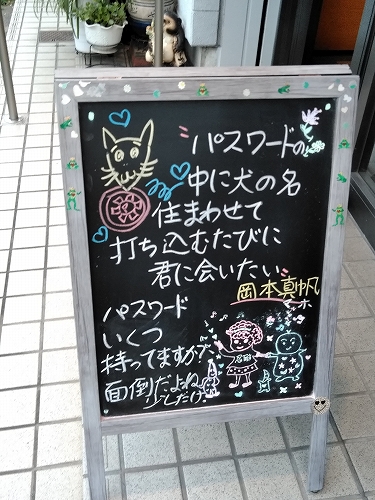 パスワードの
中に犬の名
住まわせて
打ち込むたびに
君に会いたい
岡本真帆
まほ
パスワード
いくつ
持ってますか?
面倒だよね
少しだけ